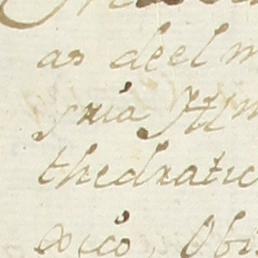 as deel m
sria Yll.m
thedratic
xico, Obi